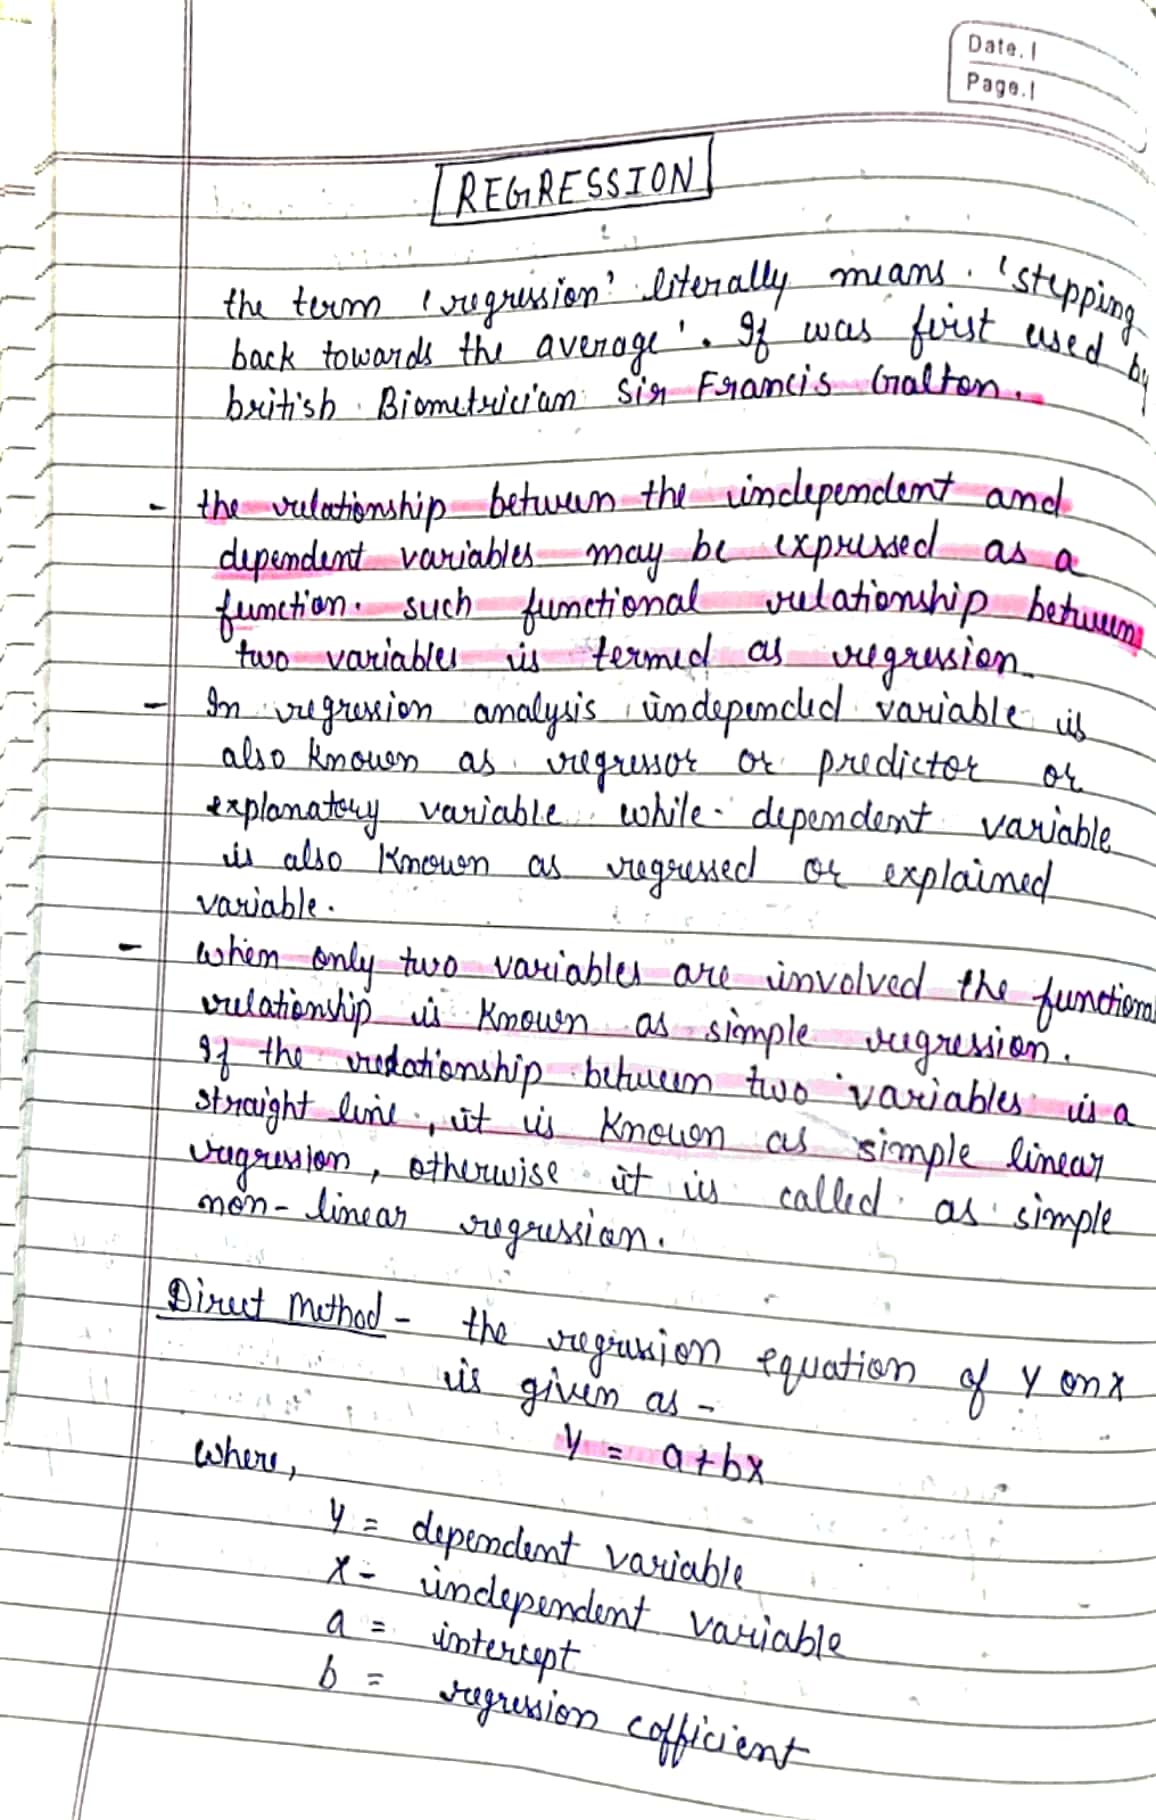 Date.
Page.
REGRESSION
the term 'regression' literally means 'stepping
back towards the average'. If was first used by
british Biometrician Sir Francis Galton.
- the relationship between the independent and
dependent variables may be expressed as a
function. such functional relationship between
two variables is termed as regression.
- In regression analysis independed variable is
also known as regressor or predictor or
explanatory variable while dependent variable
is also known as regressed or explained
variable.
- when only two variables are involved the functional
relationship is known as simple regression.
If the relationship between two variables is a
straight line, it is known as simple linear
regression, otherwise it is called as simple
non-linear regression.
Direct Method - the regression equation of Y on X
is given as -
Y = a+bx
where,
y = dependent variable
x - independent variable
a = intercept
b = regression cofficient